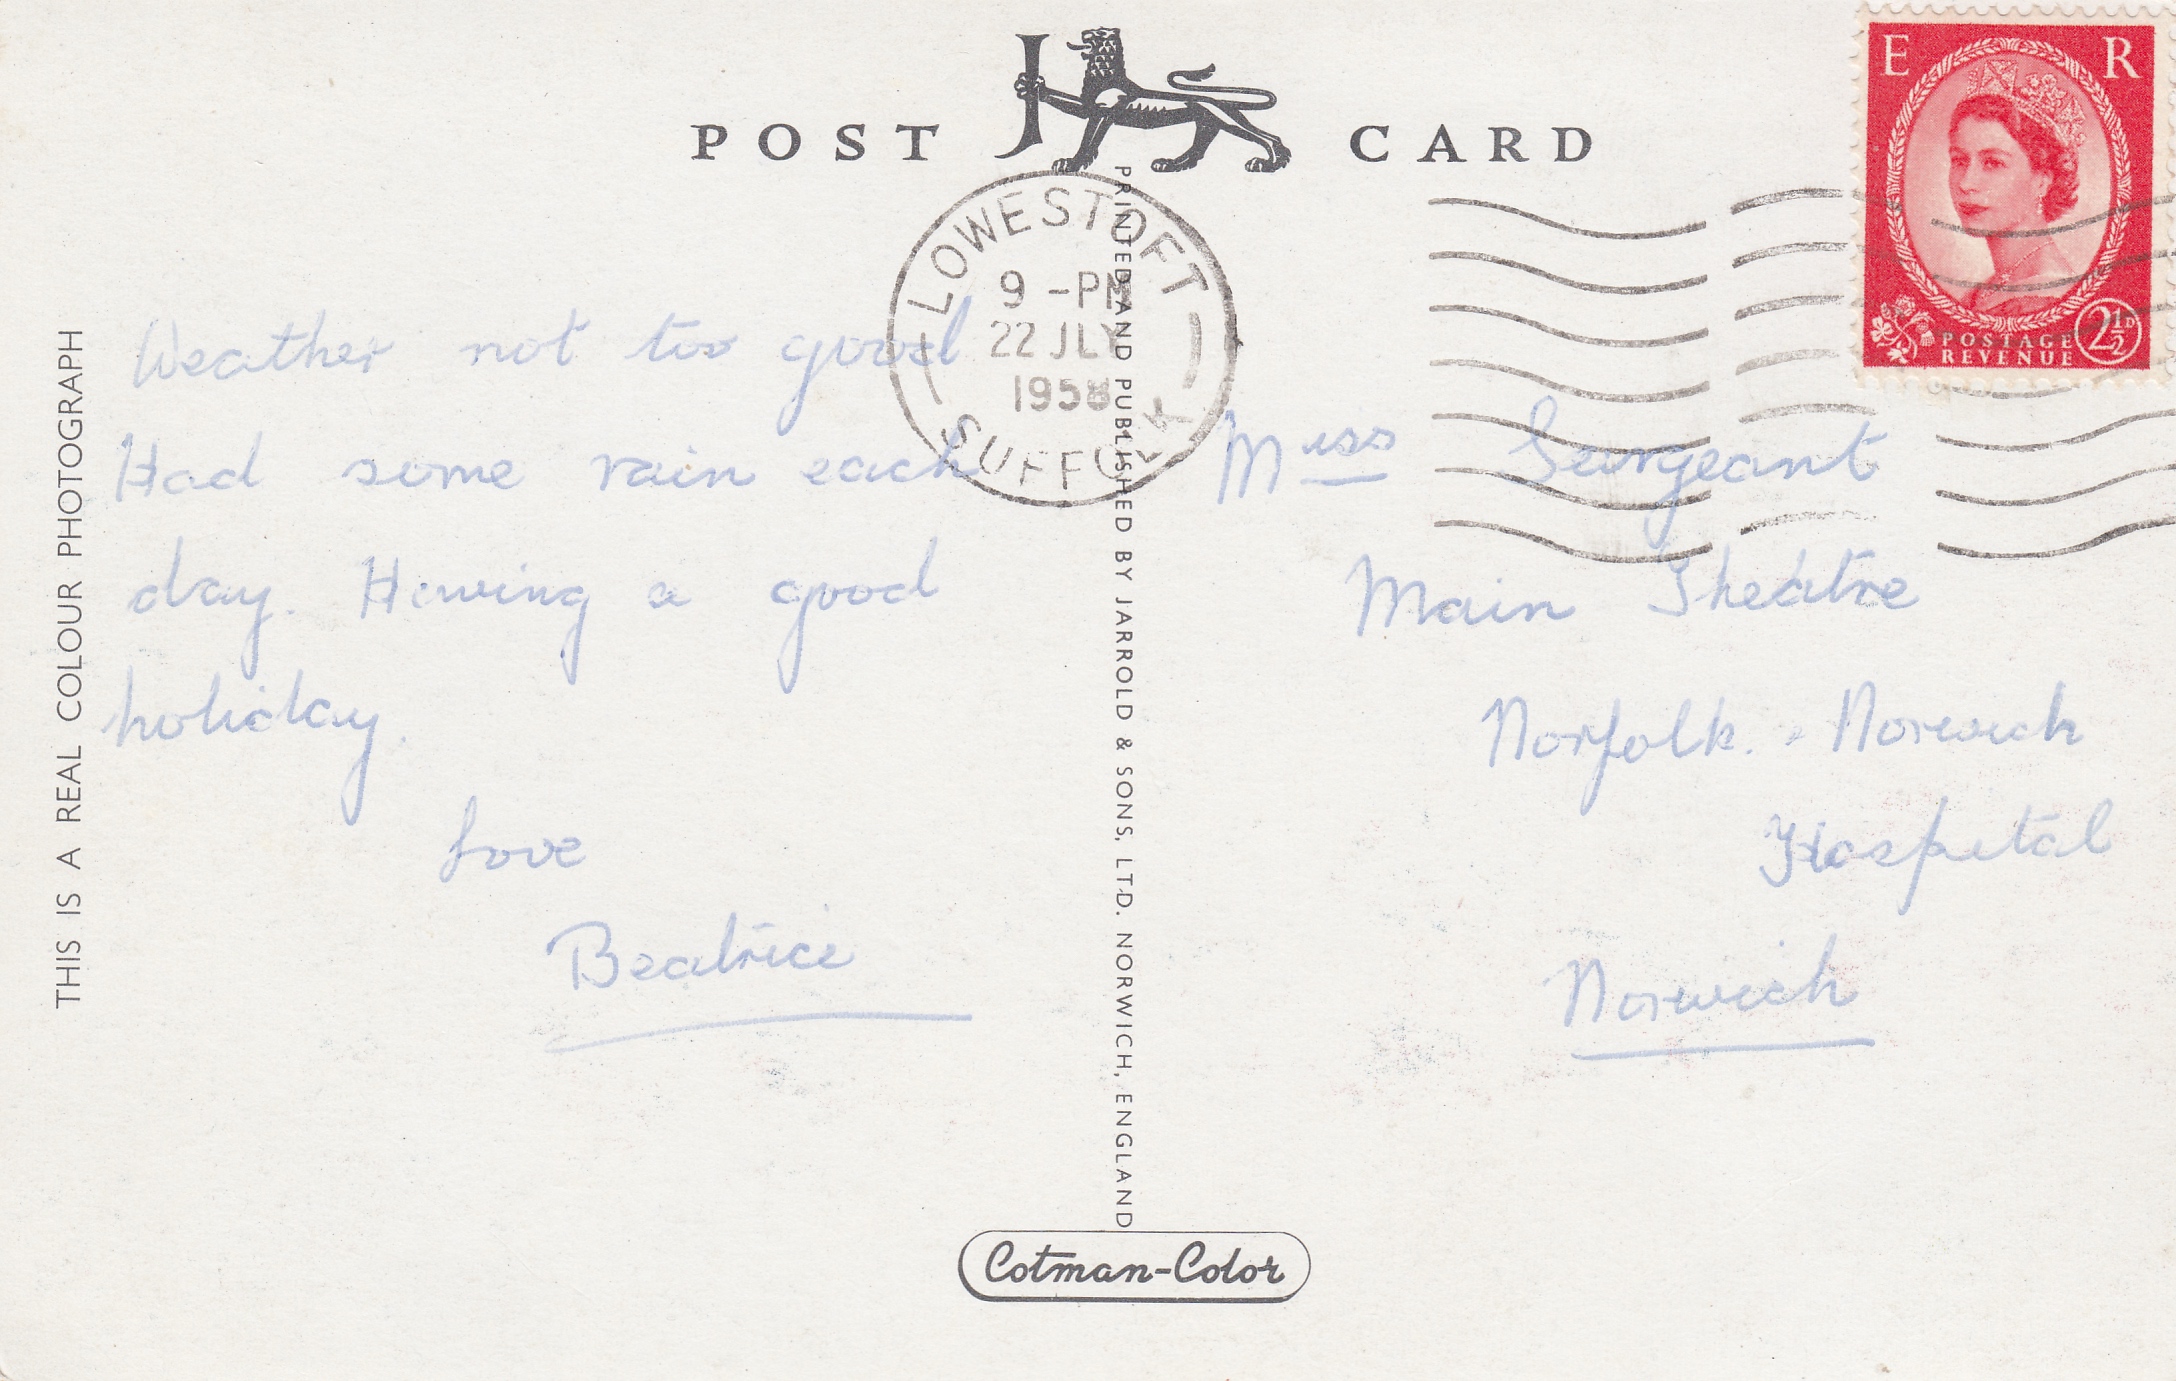 POST CARD
E R
POSTAGE
REVENUE
2½D
LOWESTOFT
9 -PM
22 JLY
1958
SUFFOLK
THIS IS A REAL COLOUR PHOTOGRAPH
Weather not too good
Had some rain each
day. Having a good
holiday.
Love
Beatrice
PRINTED AND PUBLISHED BY JARROLD & SONS, LTD. NORWICH, ENGLAND
Miss Seargeant
Main Theatre
Norfolk. & Norwich
Hospital
Norwich
Cotman-Color